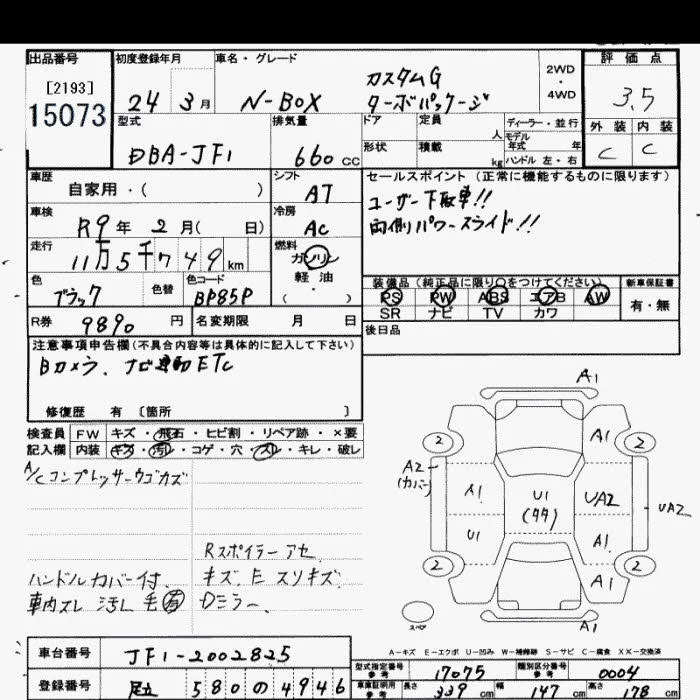 出品番号
[2193]
15073
初度登録年月
24年 3月
車名・グレード
N-BOX
カスタムG
ターボパッケージ
2WD
・
4WD
評価点
3.5
外装 内装
C C
型式
DBA-JF1
排気量
660 CC
ドア
定員
人
形状
積載
kg
ディーラー・並行
モデル
年式 年
ハンドル 左・右
車歴
自家用・( )
シフト
AT
セールスポイント (正常に機能するものに限ります)
ユーザー下取車!!
両側パワースライド!!
車検
R9年 2月( 日)
冷房
AC
走行
11万5千749km
燃料
ガソリン
軽・油
( )
色
ブラック
色替
色コード
BP85P
装備品 (純正品に限り○をつけてください)
PS PW ABS エアB AW
SR ナビ TV カワ
新車保証書
有・無
R券
9890円
名変期限 月 日
後日品
注意事項申告欄(不具合内容等は具体的に記入して下さい)
Bカメラ、ナビ連動ETC
修復歴 有 〔箇所 〕
検査員
記入欄
FW キズ・飛石・ヒビ割・リペア跡・×要
内装 キズ・汚レ・コゲ・穴・スレ・キレ・破レ
A/Cコンプレッサーウゴカズ
Rスポイラーアセ
ハンドルカバー付.
キズ. E スリキズ.
車内スレ 汚レ 毛有
Dミラー、
A1
A1
2
2
A2
(カバー)
A1
U1
(44)
UA2
UA2
U1
A1
2
2
A1
スペア
A1
A-キズ E-エクボ U-凹み W-補修跡 S-サビ C-腐食 XX-交換済
車台番号
JF1-2002825
型式指定番号
参考
17075
類別区分番号
参考
0004
登録番号
足立 580 の 4946
車庫証明用
参考
長さ 339 cm
幅 147 cm
高さ 178 cm